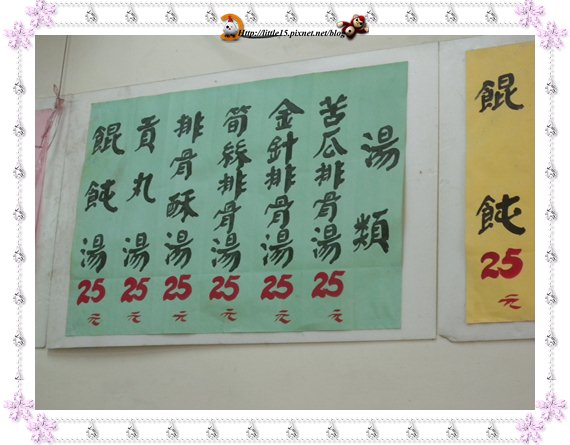 Http://little15.pixnet.net/blog
湯類
苦瓜排骨湯 25元
金針排骨湯 25元
筍絲排骨湯 25元
排骨酥湯 25元
貢丸湯 25元
餛飩湯 25元
餛飩 25元